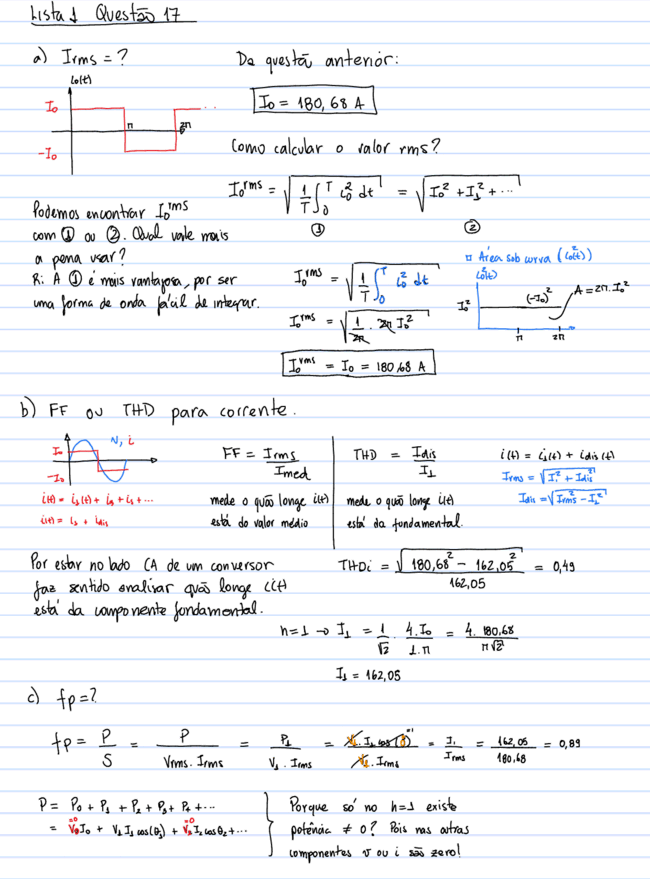 Lista 1 Questão 17
a) Irms = ?
io(t)
Io
-Io
π
2π
Da questão anterior:
Io = 180,68 A
Como calcular o valor rms?
Io^rms = √(1/T ∫₀^T io² dt) = √(Io² + I1² + ...)
① ②
Podemos encontrar Io^rms
com ① ou ②. Qual vale mais
a pena usar?
R: A ① é mais vantajosa, por ser
uma forma de onda fácil de integrar.
Io^rms = √(1/T ∫₀^T io² dt)
Io^rms = √(1/2π · 2π Io²)
Io^rms = Io = 180,68 A
Área sob curva (io²(t))
io²(t)
Io²
(-Io)²
A = 2π·Io²
π
2π
b) FF ou THD para corrente.
v, i
Io
-Io
i(t) = i1(t) + i3 + i5 + ...
i(t) = i1 + idis
FF = Irms/Imed
mede o quão longe i(t)
está do valor médio
THD = Idis/I1
mede o quão longe i(t)
está da fundamental.
i(t) = i1(t) + idis(t)
Irms = √(I1² + Idis²)
Idis = √(Irms² - I1²)
Por estar no lado CA de um conversor
faz sentido analisar quão longe i(t)
está da componente fundamental.
THDi = √(180,68² - 162,05²)/162,05 = 0,49
h=1 → I1 = 1/√2 · 4.Io/1.π = 4.180,68/π√2
I1 = 162,05
c) fp=?
fp = P/S = P/(Vrms . Irms) = P1/(V1 . Irms) = V1 . I1 cos(θ)/(V1 . Irms) = I1/Irms = 162,05/180,68 = 0,89
=1
P = P0 + P1 + P2 + P3 + P4 + ...
= V0 I0 + V1 I1 cos(θ1) + V2 I2 cos θ2 + ...
=0
=0
Porque só no h=1 existe
potência ≠ 0? Pois nas outras
componentes v ou i são zero!